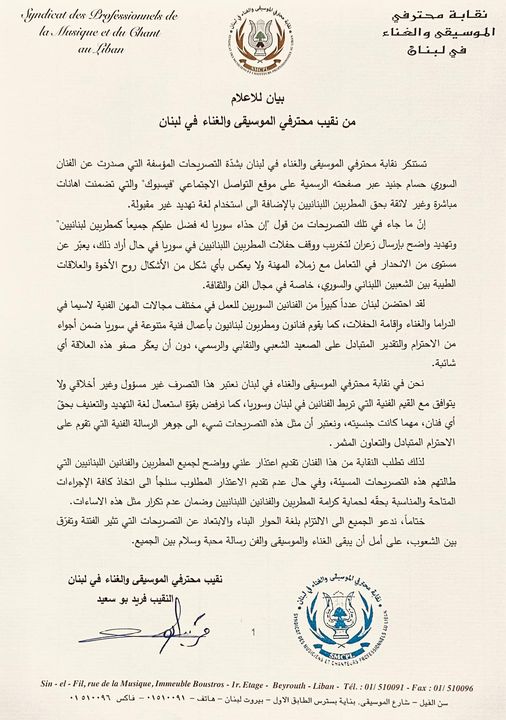 Syndicat des Professionnels de
la Musique et du Chant
au Liban
نقابة محترفي
الموسيقى والغناء
في لبنان
بيان للاعلام
من نقيب محترفي الموسيقى والغناء في لبنان
تستنكر نقابة محترفي الموسيقى والغناء في لبنان بشدّة التصريحات المؤسفة التي صدرت عن الفنان
السوري حسام جنيد عبر صفحته الرسمية على موقع التواصل الاجتماعي "فيسبوك" والتي تضمنت اهانات
مباشرة وغير لائقة بحق المطربين اللبنانيين بالإضافة الى استخدام لغة تهديد غير مقبولة.
إنّ ما جاء في تلك التصريحات من قول "إن حذاء سوريا له فضل عليكم جميعاً كمطربين لبنانيين"
وتهديد واضح بإرسال زعران لتخريب ووقف حفلات المطربين اللبنانيين في سوريا في حال أراد ذلك، يعبّر عن
مستوى من الانحدار في التعامل مع زملاء المهنة ولا يعكس بأي شكل من الأشكال روح الأخوة والعلاقات
الطيبة بين الشعبين اللبناني والسوري، خاصة في مجال الفن والثقافة.
لقد احتضن لبنان عدداً كبيراً من الفنانين السوريين للعمل في مختلف مجالات المهن الفنية لاسيما في
الدراما والغناء وإقامة الحفلات، كما يقوم فنانون ومطربون لبنانيون بأعمال فنية متنوعة في سوريا ضمن أجواء
من الاحترام والتقدير المتبادل على الصعيد الشعبي والنقابي والرسمي، دون أن يعكّر صفو هذه العلاقة أي
شائبة.
نحن في نقابة محترفي الموسيقى والغناء في لبنان نعتبر هذا التصرف غير مسؤول وغير أخلاقي ولا
يتوافق مع القيم الفنية التي تربط الفنانين في لبنان وسوريا، كما نرفض بقوّة استعمال لغة التهديد والتعنيف بحقّ
أي فنان، مهما كانت جنسيته، ونعتبر أن مثل هذه التصريحات تسيء الى جوهر الرسالة الفنية التي تقوم على
الاحترام المتبادل والتعاون المثمر.
لذلك تطلب النقابة من هذا الفنان تقديم اعتذار علني وواضح لجميع المطربين والفنانين اللبنانيين التي
طالتهم هذه التصريحات المسيئة، وفي حال عدم تقديم الاعتذار المطلوب سنلجأ الى اتخاذ كافة الإجراءات
المتاحة والمناسبة بحقّه لحماية كرامة المطربين والفنانين اللبنانيين وضمان عدم تكرار مثل هذه الاساءات.
ختاماً، ندعو الجميع الى الالتزام بلغة الحوار البناء والابتعاد عن التصريحات التي تثير الفتنة وتفرّق
بين الشعوب، على أمل أن يبقى الغناء والموسيقى والفن رسالة محبة وسلام بين الجميع.
نقيب محترفي الموسيقى والغناء في لبنان
النقيب فريد بو سعيد
1
نقابة محترفي الموسيقى والغناء في لبنان
SYNDICAT DES MUSICIENS ET CHANTEURS PROFESSIONNELS AU LIBAN
SMCPL
Sin - el - Fil, rue de la Musique, Immeuble Boustros - 1r. Etage - Beyrouth - Liban - Tél. : 01/ 510091 - Fax : 01/ 510096
سن الفيل – شارع الموسيقى، بناية بسترس الطابق الاول – بيروت لبنان – هاتف – ٠١٥١٠٠٩١ – فاكس ٠١٥١٠٠٩٦